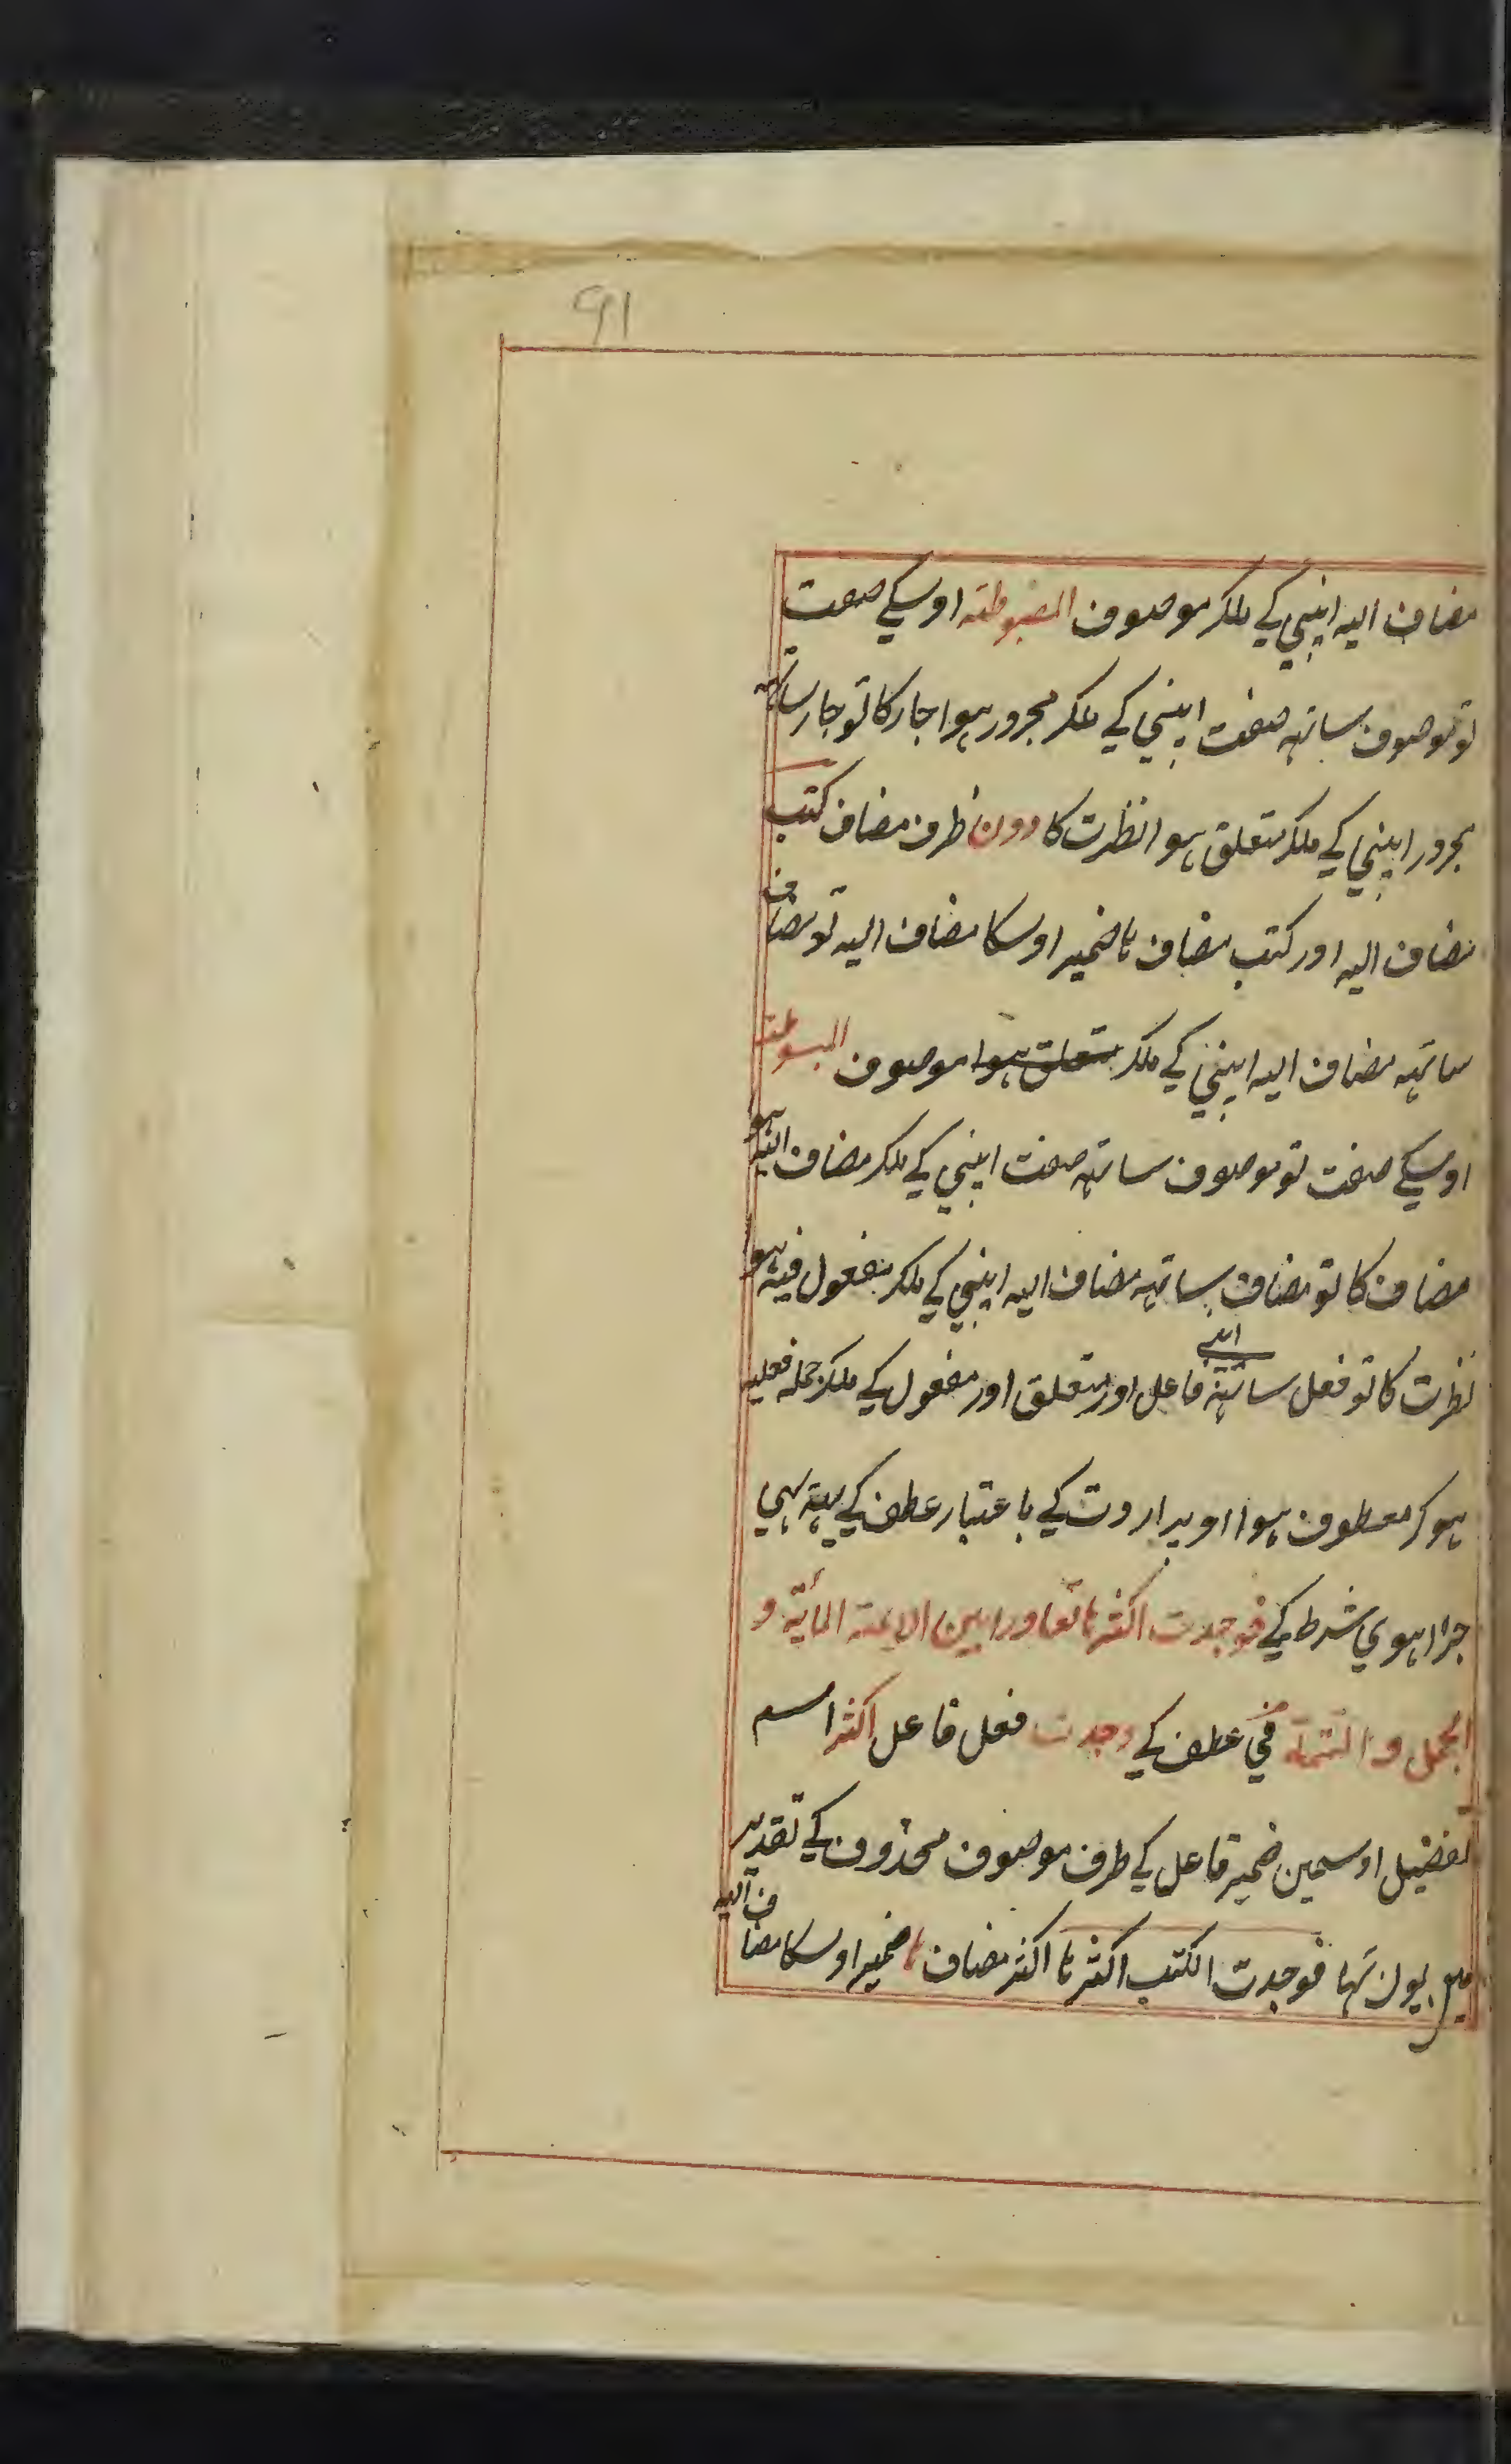 91
مضاف الیہ اپنیي کے ملکر موصوف المضبوطته اوسکے صفت
تو موصوف ساتہہ صفت اپنیي کے ملکر مجرور ہوا جار کا تو جار ساتہہ
مجرور اپنیي کے ملکر متعلق ہوا نظرت کا دون ظرف مضاف کتب
مضاف الیہ اور کتب مضاف ہا ضمیر اوسکا مضاف الیہ تو مضاف
ساتہہ مضاف الیہ اپنیي کے ملکر متعلق ہوا موصوف المبسوطته
اوسکے صفت تو موصوف ساتہہ صفت اپنیي کے ملکر مضاف الیہ ہوا
مضاف کا تو مضاف ساتہہ مضاف الیہ اپنیي کے ملکر مفعول فیہ ہوا
نظرت کا تو فعل ساتہہ اپنے فاعل اور متعلق اور مفعول کے ملکر جملہ فعلیہ
ہو کر معطوف ہوا اوپر اردت کے با عتبار عطف کے یہہ بہي
جزا ہوي شرط کے فوجدت اکثرها تعاورا بین الایمة المأیة و
الجمل و التتمة في عطف کے وجدت فعل فاعل اکثر اسم
تفضیل اوسمین ضمیر فاعل کے طرف موصوف محذوف کے تقدیر
یون تہا فوجدت الکتب اکثرها اکثر مضاف ها ضمیر اوسکا مضاف الیہ